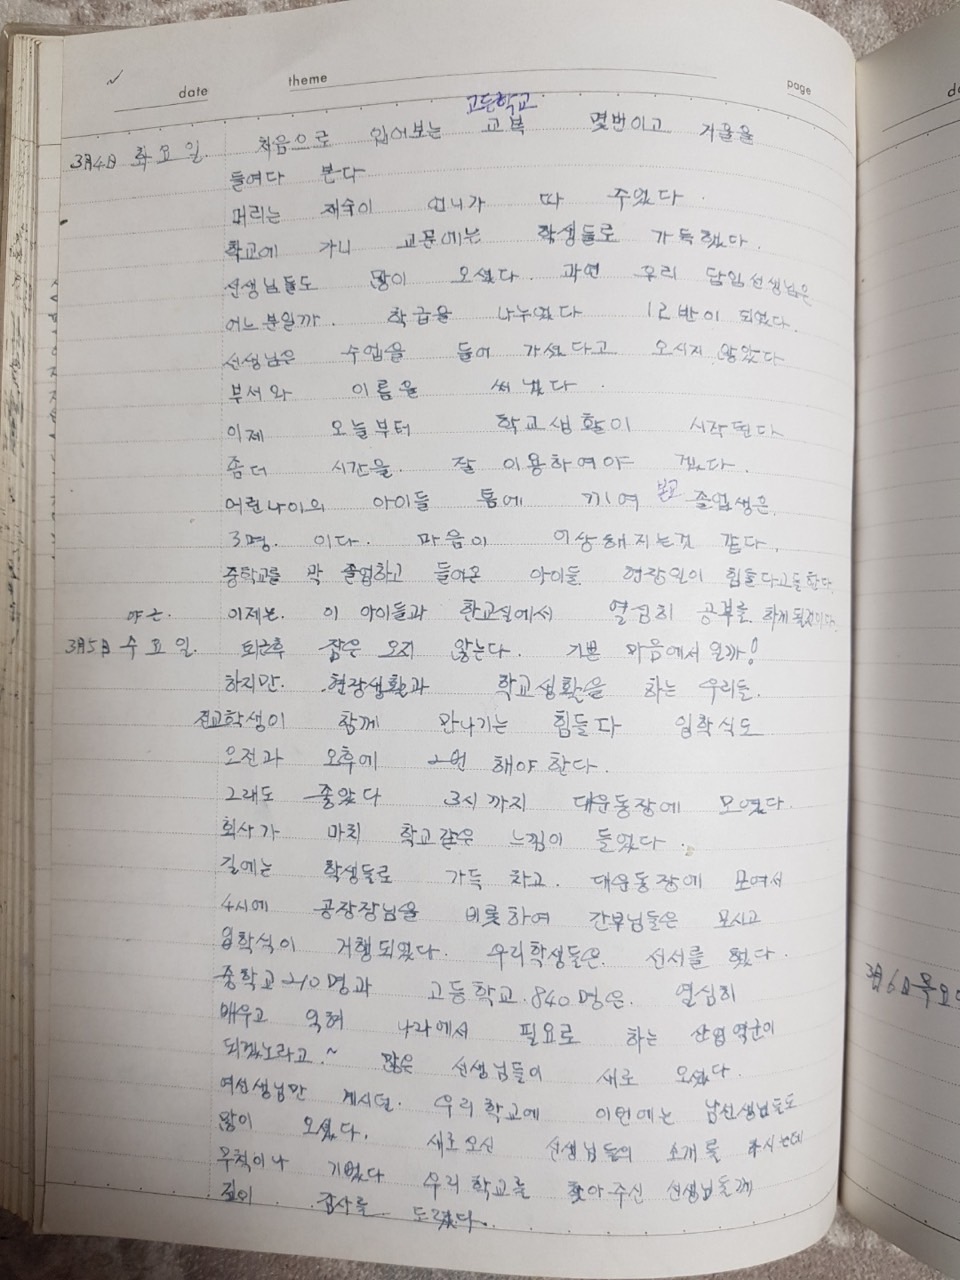 date theme page
고등학교
3月4日 화요일. 처음으로 입어보는 교복 몇번이고 거울을
들여다 본다
머리는 재숙이 언니가 따 주었다.
학교에 가니 교문에는 학생들로 가득했다.
선생님들도 많이 오셨다. 과연 우리 담임선생님은
어느분일까. 학급을 나누었다 12반이 되었다.
선생님은 수업을 들어 가셨다고 오시지 않았다
부서와 이름을 써 냈다.
이제 오늘부터 학교생활이 시작된다
좀더 시간을. 잘 이용하여야 겠다.
어린나이의 아이들 틈에 끼여 본교 졸업생은
3명. 이다. 마음이 이상해지는것 같다.
중학교를 막 졸업하고 들어온 아이들. 현장일이 힘들다고들한다.
야근. 이제는. 이 아이들과 한교실에서 열심히 공부를 하게될것이다.
3月5日 수요일. 퇴근후 잠은 오지 않는다. 기쁜 마음에서 일까!
하지만. 현장생활과 학교생활을 하는 우리들.
전교학생이 함께 만나기는 힘들다 입학식도
오전과 오후에 2번 해야한다.
그래도 좋았다 3시까지 대운동장에 모였다.
회사가 마치 학교같은 느낌이 들었다.
길에는 학생들로 가득 차고. 대운동장에 모여서
4시에 공장장님을 비롯하여 간부님들은 모시고
입학식이 거행되었다. 우리학생들은. 선서를 했다.
중학교 210명과 고등학교.840명은. 열심히
배우고 익혀 나라에서 필요로 하는 산업역군이
되겠노라고.~ 많은 선생님들이 새로 오셨다.
여선생님만 계시던. 우리학교에 이번에는 남선생님들도
많이 오셨다. 새로오신 선생님들의 소개를 하시는데
무척이나 기뻤다 우리학교를 찾아주신 선생님들께
깊이 감사를 드렸다.
3月6日목요